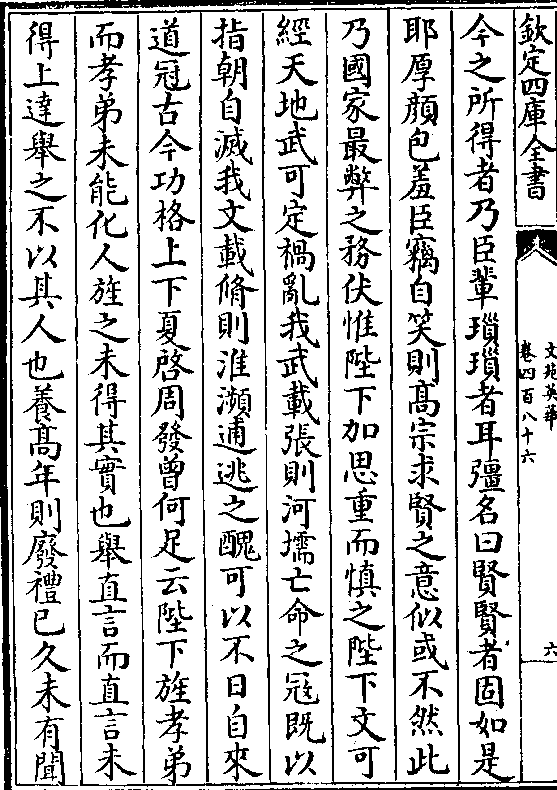 欽定四庫全書
文苑英華
卷四百八十六
六
今之所得者乃臣輩瑣瑣者耳彊名曰賢賢者固如是
耶厚顔包羞臣竊自笑則髙宗求賢之意似或不然此
乃國家最弊之務伏惟陛下加思重而慎之陛下文可
經天地武可定禍亂我武載張則河壖亡命之冦既以
指朝自滅我文載脩則淮瀕逋逃之醜可以不日自來
道冠古今功格上下夏啓周發曾何足云陛下旌孝弟
而孝弟未能化人旌之未得其實也舉直言而直言未
得上達舉之不以其人也養髙年則廢禮已久未有聞